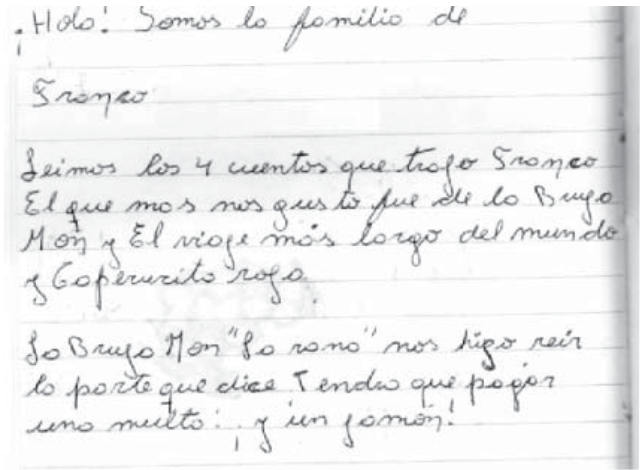 ¡Hola! Somos la familia de
Franco
Leimos los 4 cuentos que trajo Franco
El que mas nos gusto fue de la Bruja
Mon y El viaje más largo del mundo
y Caperucita roja.
La Bruja Mon "La rana" nos higo reir
la parte que dice Tendra que pagar
una multa: ¡y un jamón!